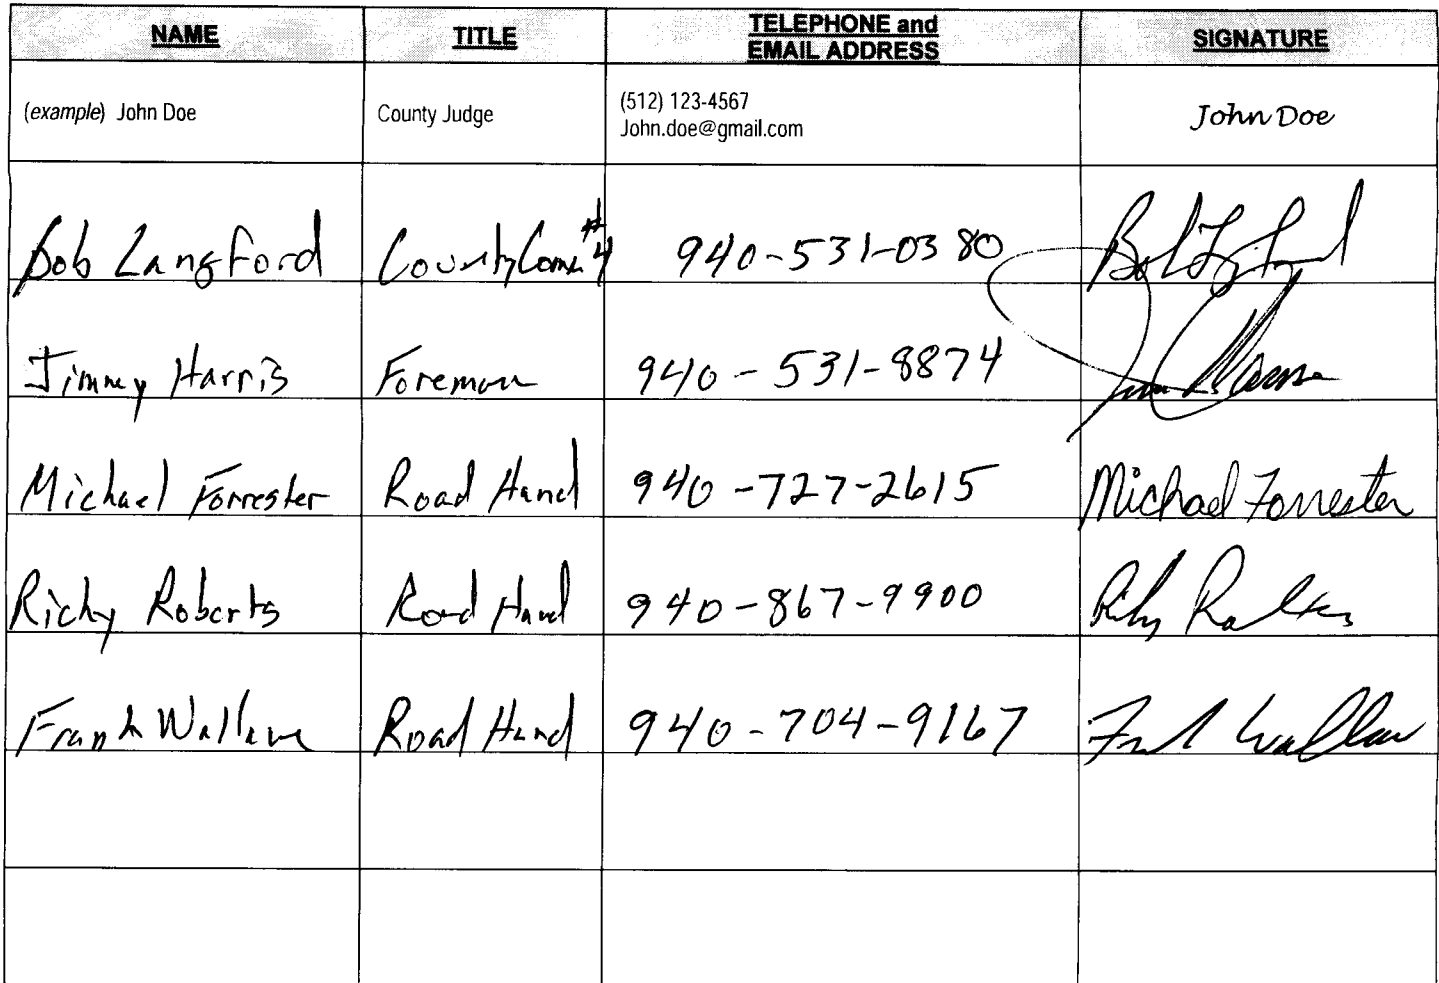 NAME TITLE TELEPHONE and EMAIL ADDRESS SIGNATURE
(example) John Doe County Judge (512) 123-4567 John Doe
John.doe@gmail.com
Bob Langford County Com. #4 940-531-0380
Jimmy Harris Foreman 940-531-8874
Michael Forrester Road Hand 940-727-2615 Michael Forrester
Richy Roberts Road Hand 940-867-9900
Frank Wallace Road Hand 940-704-9167 Frank Wallace